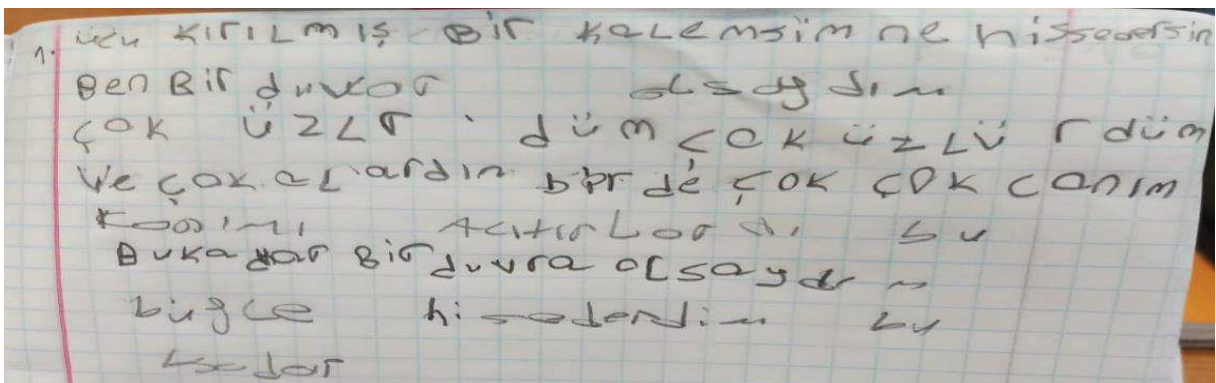 1. KIRILMIŞ BİR KALEMSİM ne hissedersin
Ben Bir duvar olsaydım
ÇOK ÜZLR düm ÇOK ÜZLÜ r düm
Ve ÇOK aLardın bir de ÇOK ÇOK canım
Acıtırlardı bu
Bukadar Bir duvra olsaydım
bügle hissederdim bu
kadar